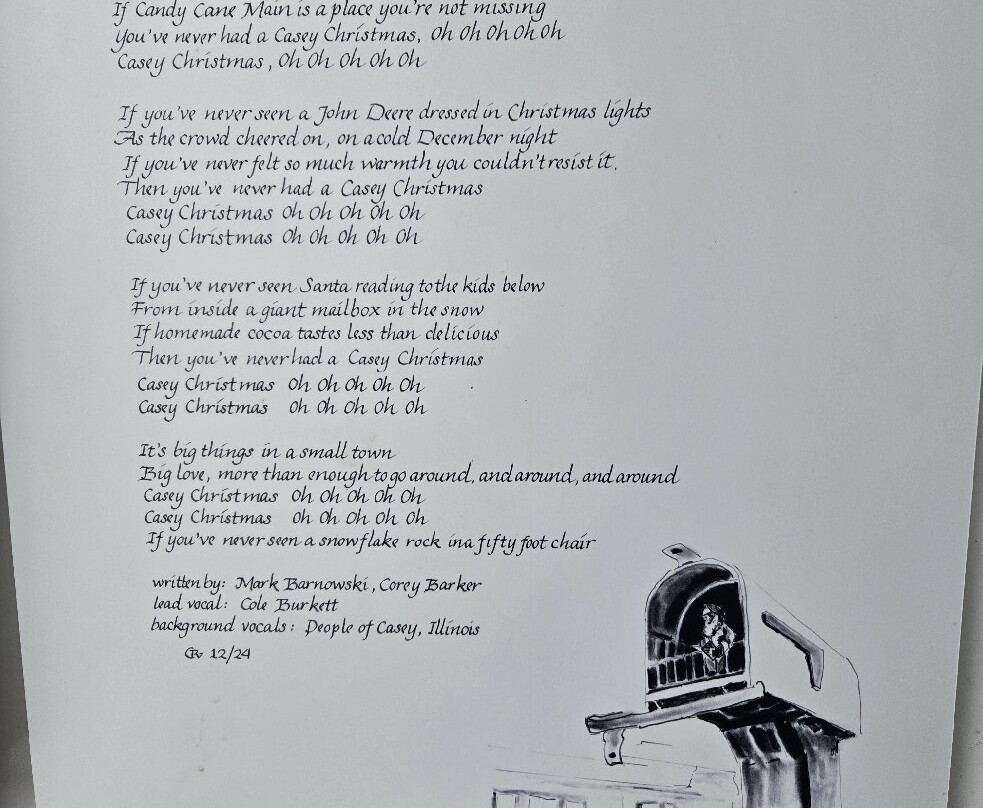 If Candy Cane Main is a place you're not missing
You've never had a Casey Christmas, Oh Oh Oh Oh Oh
Casey Christmas, Oh Oh Oh Oh Oh
If you've never seen a John Deere dressed in Christmas lights
As the crowd cheered on, on a cold December night
If you've never felt so much warmth you couldn't resist it.
Then you've never had a Casey Christmas
Casey Christmas Oh Oh Oh Oh Oh
Casey Christmas Oh Oh Oh Oh Oh
If you've never seen Santa reading to the kids below
From inside a giant mailbox in the snow
If homemade cocoa tastes less than delicious
Then you've never had a Casey Christmas
Casey Christmas Oh Oh Oh Oh Oh
Casey Christmas Oh Oh Oh Oh Oh
It's big things in a small town
Big love, more than enough to go around, and around, and around
Casey Christmas Oh Oh Oh Oh Oh
Casey Christmas Oh Oh Oh Oh Oh
If you've never seen a snowflake rock in a fifty foot chair
written by: Mark Barnowski, Corey Barker
lead vocal: Cole Burkett
background vocals: People of Casey, Illinois
12/24